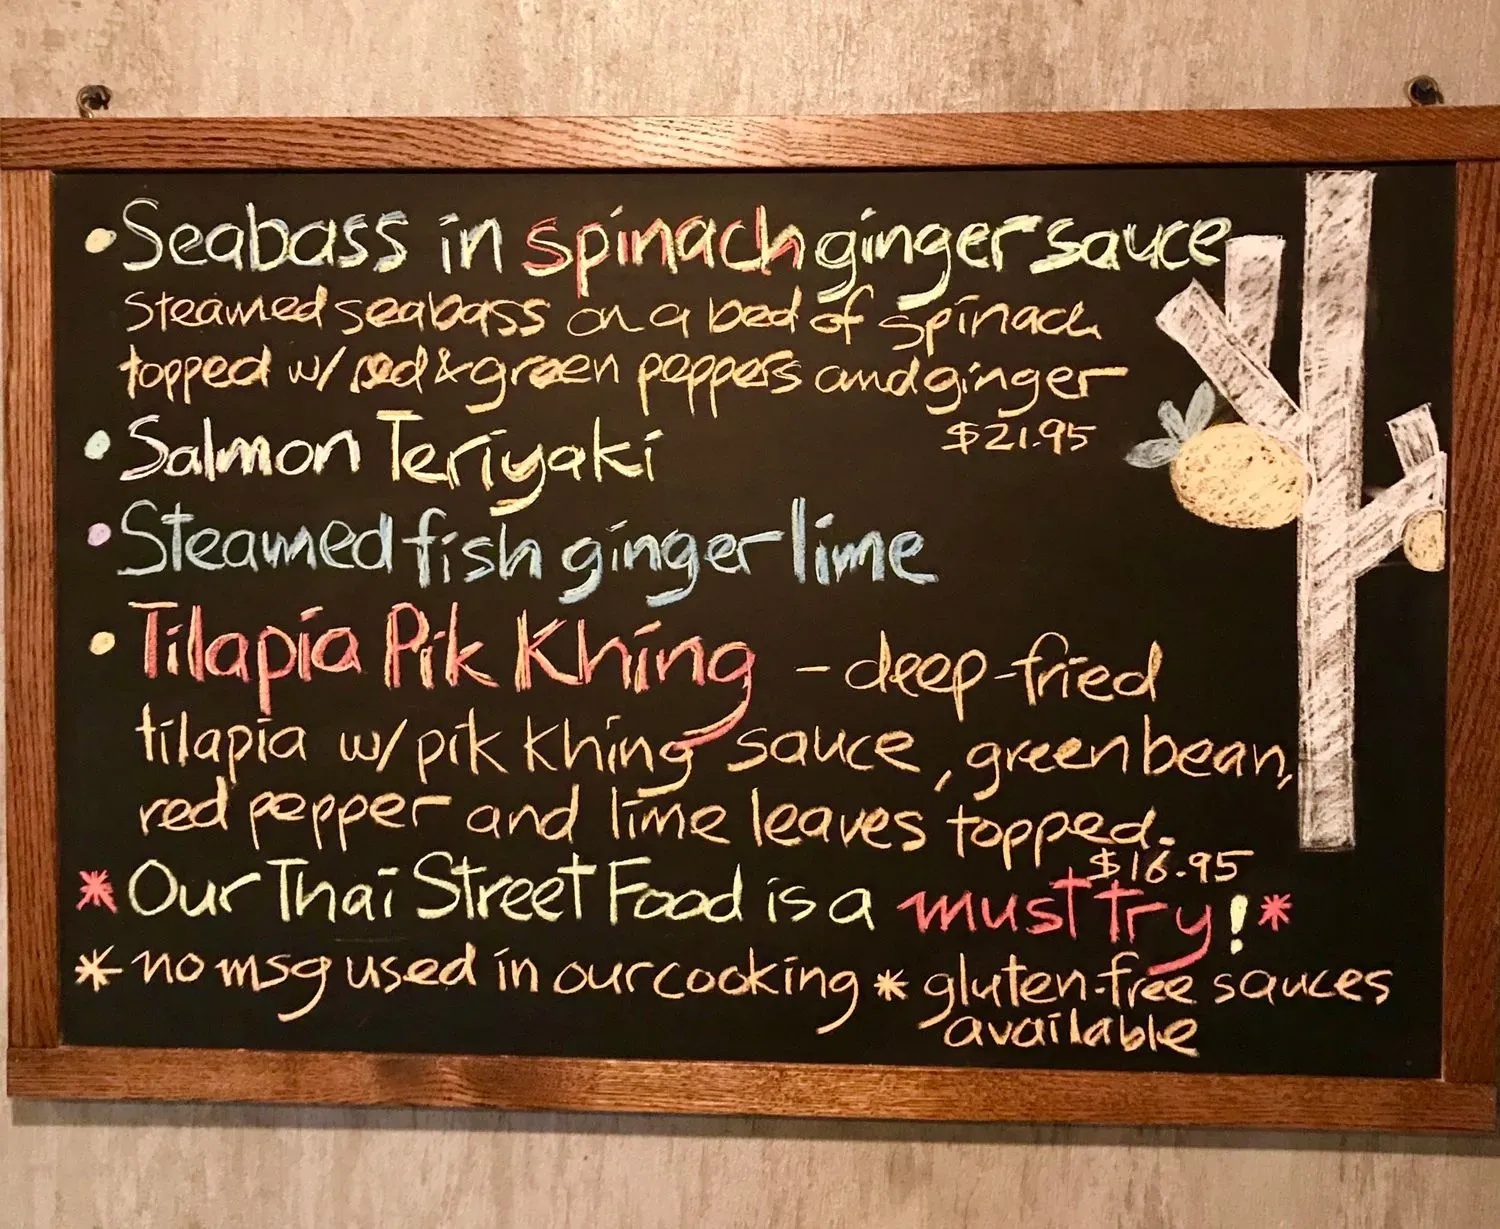 • Seabass in spinach ginger sauce
Steamed seabass on a bed of spinach
topped w/ red & green peppers and ginger
$21.95
• Salmon Teriyaki
• Steamed fish ginger lime
• Tilapia Pik Khing - deep-fried
tilapia w/ pik khing sauce, green bean,
red pepper and lime leaves topped.
$16.95
* Our Thai Street Food is a must try! *
* no msg used in our cooking * gluten-free sauces
available